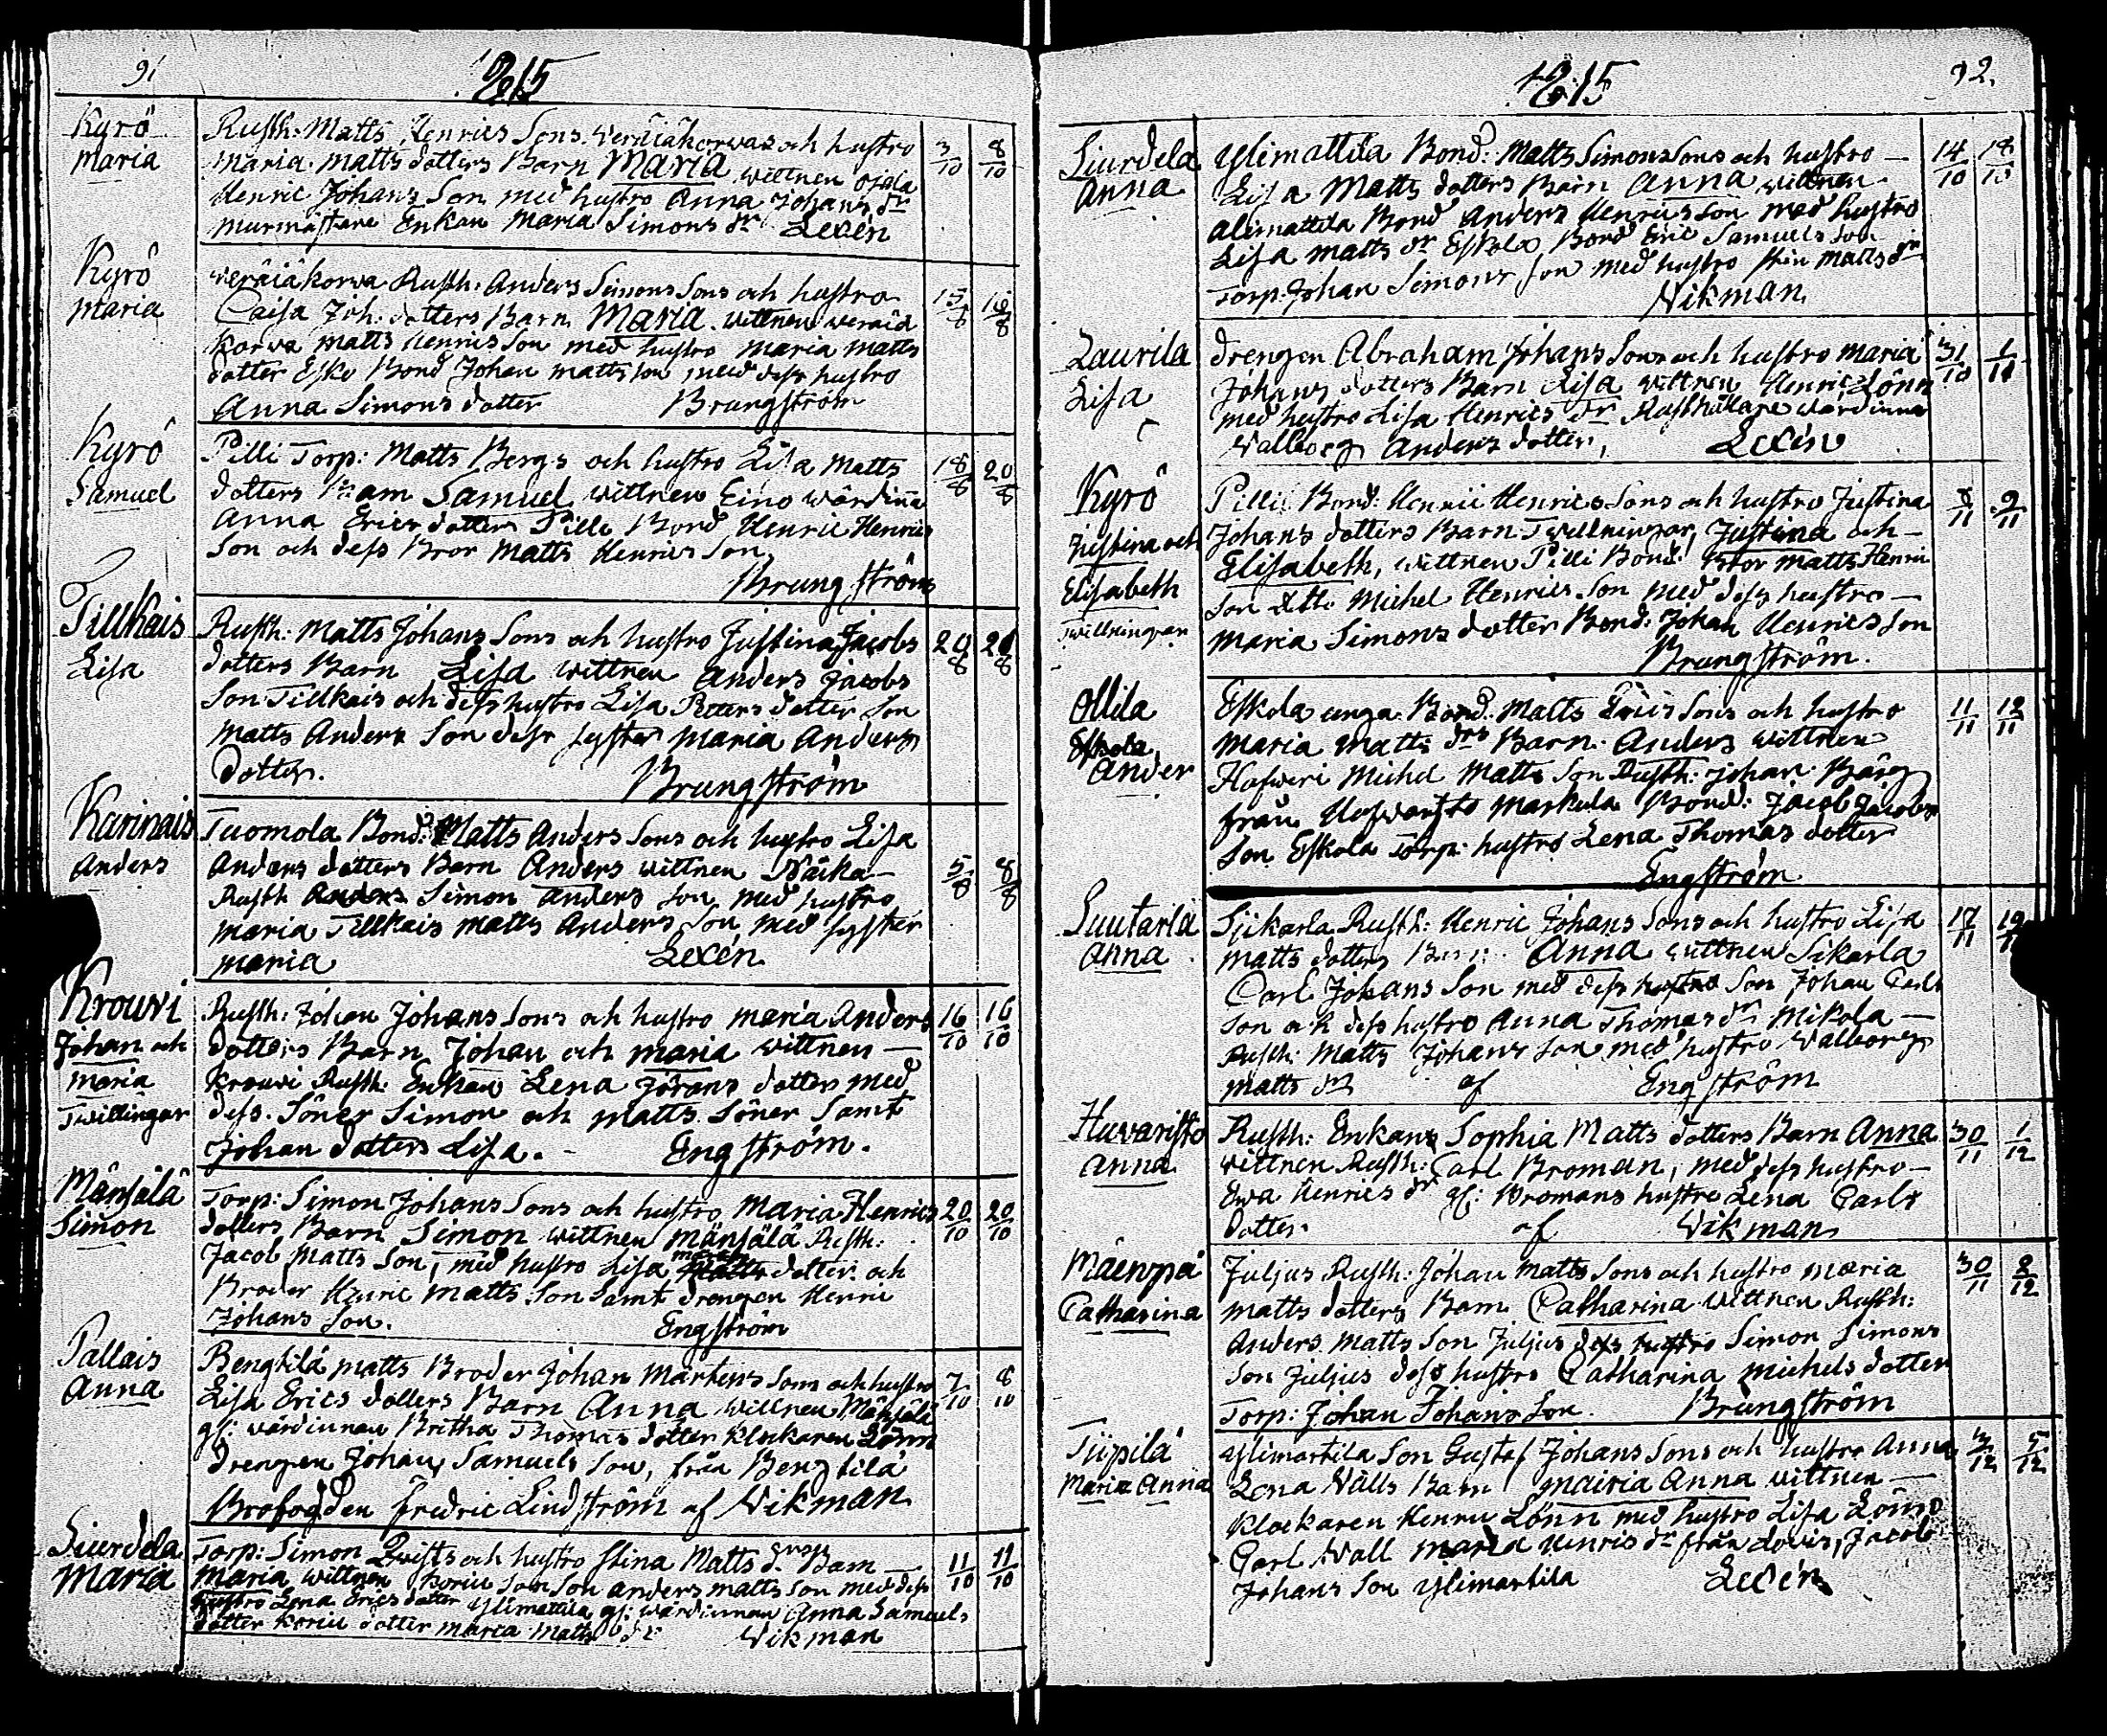 91
1815
Kyrö
Maria
Rusth: Matts Henrics Sons Weräiäkorwas och hustro
Maria Matts dotters Barn Maria wittnen Ojala
Henric Johans Son med hustro Anna Johans dr
Murmästare Enkan Maria Simons dr Lexén
3/10 8/10
Kyrö
Maria
Weräiäkorwa Rusth: Anders Simons Sons och hustro
Caisa Joh: dotters Barn Maria wittnen Weraiä
korwa Matts Henrics Son med hustro Maria Matts
dotter Esko Bond Johan Matts son med dess hustro
Anna Simons dotter Brungström
15/8 16/8
Kyrö
Samuel
Pilli Torp: Matts Bergs och hustro Lisa Matts
dotters Barn Samuel wittnen Eino wärdinna
Anna Erics dotter Pilli Bond Henric Henrics
Son och dess Bror Matts Henrics Son
Brungström
18/8 20/8
Tillkais
Lisa
Rusth: Matts Johans Sons och hustro Justina Jacobs
dotters Barn Lisa wittnen Anders Jacobs
Son Tillkais och dess hustro Lisa Petters dotter Son
Matts Anders Son dess syster Maria Anders
dotter. Brungström
20/8 20/8
Karinais
Anders
Tuomola Bond: Matts Anders Sons och hustro Lisa
Anders dotters Barn Anders wittnen Näika
Rusth Simon Anders Son med hustro
Maria Tillkais Matts Anders Son med syster
Maria Lexén
5/8 8/8
Krouvi
Johan och
Maria
Twillingar
Rusth: Johan Johans Sons och hustro Maria Anders
dotters Barn Johan och Maria wittnen
Krouvi Rusth: Enkan Lena Jörans dotter med
dess Söner Simon och Matts Söner Samt
Johan dotters Lisa. Engström.
16/10 16/10
Mänsälä
Simon
Torp: Simon Johans Sons och hustro Maria Henrics
dotters Barn Simon wittnen Mänsälä Rusth:
Jacob Matts Son, med hustro Lisa dotter och
Broder Henric Matts Son Samt drengen Henric
Johans Son. Engström
20/10 20/10
Pallais
Anna
Bengtilä Matts Broder Johan Mårtens Sons och hustro
Lisa Erics dotters Barn Anna wittnen Mänsälä
gl: wärdinnan Britha Thomas dotter klockaren Lönn
drengen Johan Samuels Son, från Bengtilä
Brofogden Fredric Lindström af Vikman
7/10 8/10
Siurdela
Maria
Torp: Simon Qvists och hustro Stina Matts dr Barn
Maria wittnen Son Anders Matts Son med dess
hustro Lena Erics dotter Ylimattila gl: wärdinnan Anna Samuels
dotter dotter Maria Matts dr Vikman
11/10 11/10
1815
92.
Siurdela
Anna
Ylimattila Bond: Matts Simons Sons och hustro
Lisa Matts dotters Barn Anna wittnen
Alimattila Bond Anders Henrics Son med hustro
Lisa Matts dr Eskola Bond Eric Samuels Son
Torp: Johan Simons Son med hustro Stin Matts dr
Vikman
14/10 18/10
Laurila
Lisa
drengen Abraham Johans Sons och hustro Maria
Johans dotters Barn Lisa wittnen Henric Lönn
med hustro Lisa Henrics dr Rusthållare wärdinna
Walborg Anders dotter, Lexén
31/10 1/11
Kyrö
Justina och
Elisabeth
Twillningar
Pilli Bond: Henric Henrics Sons och hustro Justina
Johans dotters Barn Twillningar Justina och
Elisabeth, wittnen Pilli Bond: Bror Matts Henric
Son ditto Michel Henrics Son med dess hustro
Maria Simons dotter Bond: Johan Henrics Son
Brungström.
8/11 9/11
Ollila
Ander
Eskola unga Bond: Matts Erics Sons och hustro
Maria Matts drs Barn Anders wittnen
Hofweri Michel Matts Son Rusth: Johan Bärg
från Markula Bond: Jacob Jacobs
Son Eskola Torp: hustro Lena Thomas dotter
Engström
11/11 12/11
Suutarla
Anna
Sikarla Rusth: Henric Johans Sons och hustro Lisa
Matts dotters Barn Anna wittnen Sikarla
Carl Johans Son med dess Son Johan Carls
Son och dess hustro Anna Thomas dr Mikola
Rusth: Matts Johans Son med hustro Walborg
Matts dr af Engström
17/11 19/11
Huvaristo
Anna
Rusth: Enkans Sophia Matts dotters Barn Anna
wittnen Rusth: Carl Broman, med dess hustro
Ewa Henrics dr gl: Bromans hustro Lena Carls
dotter. af Vikman
30/11 1/12
Mäenpä
Catharina
Juljus Rusth: Johan Matts Sons och hustro Maria
Matts dotters Barn Catharina wittnen Rusth:
Anders Matts Son Juljus dess hustro Simon Simons
Son Juljus dess hustro Catharina Michels dotter
Torp: Johan Johans Son Brungström
30/11 2/12
Tiipilä
Maria Anna
Ylimartila Son Gustaf Johans Sons och hustro Anna
Lena Wälls Barn Maria Anna wittnen
Klockaren Henric Lönn med hustro Lisa Lönn
Carl Wall Maria Henrics dr från Lovis, Jacob
Johans Son Ylimartila Lexén
3/12 5/12